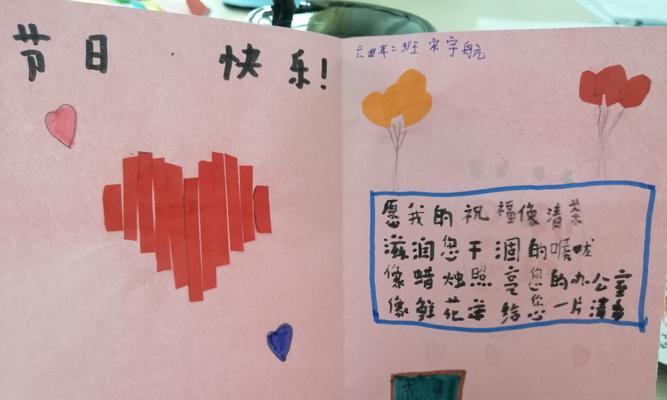 节日快乐!
六年二班 宋宇航
愿我的祝福像清茶
滋润您干涸的喉咙
像蜡烛照亮您的办公室
像鲜花 给您一片清